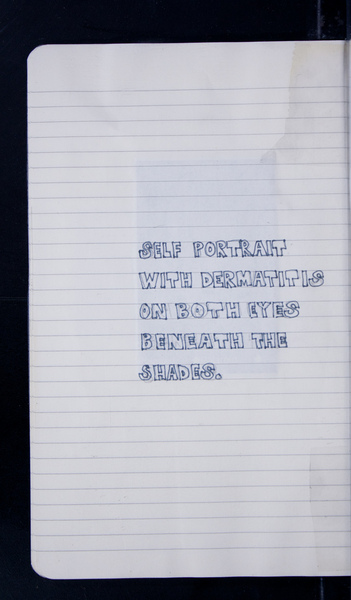 SELF PORTRAIT
WITH DERMATITIS
ON BOTH EYES
BENEATH THE
SHADES.